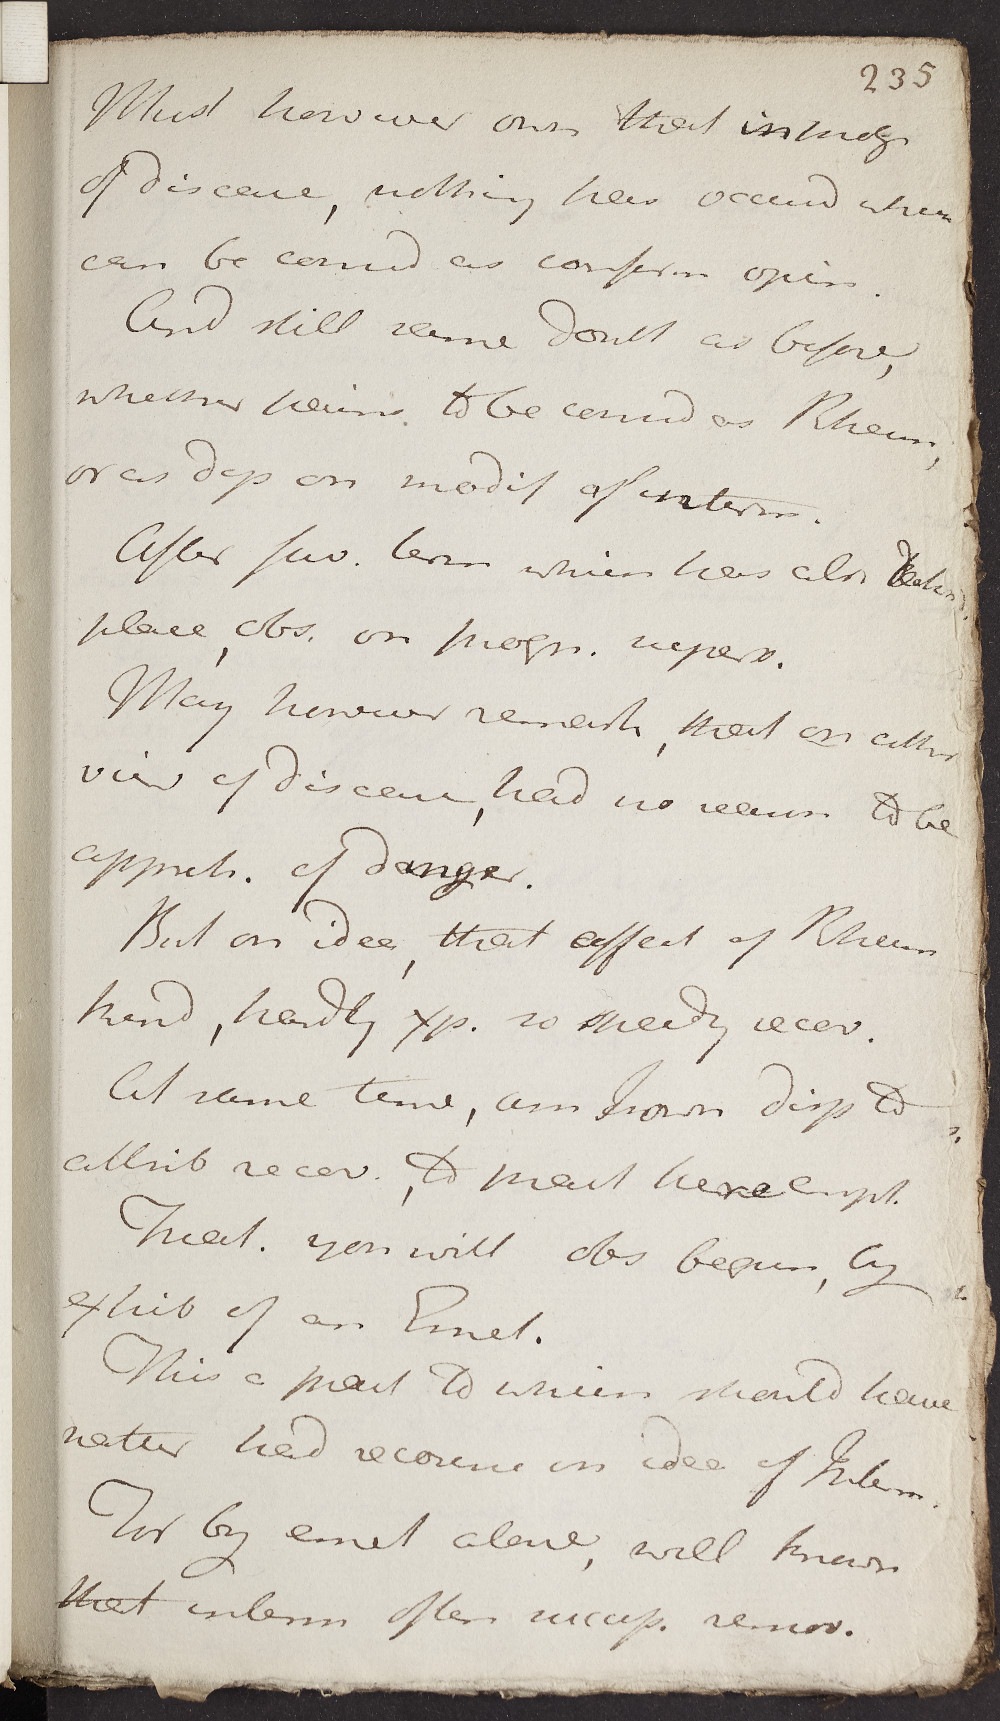 235
Must however own that in progr
of disease, nothing has occurd whic
can be considd as confirm opin.
And still same doubt as before,
whether pains to be considd as Rheum,
or as dep on modif of interm.
After fav. term which has also taken
place, obs. on progn. superfl.
May however remark, that on either
view of disease, had no reason to be
appreh. of danger.
But on idea, that affect of Rheum
kind, hardly exp. so speedy recov.
At same time, am I own disp to
attrib recov. to pract here empl.
Treat. you will obs begun, by
exhib of an Emet.
This a pract to which should have
rather had recourse on idea of Interm.
For by emet alone, well known
that interm often succesf. remov.